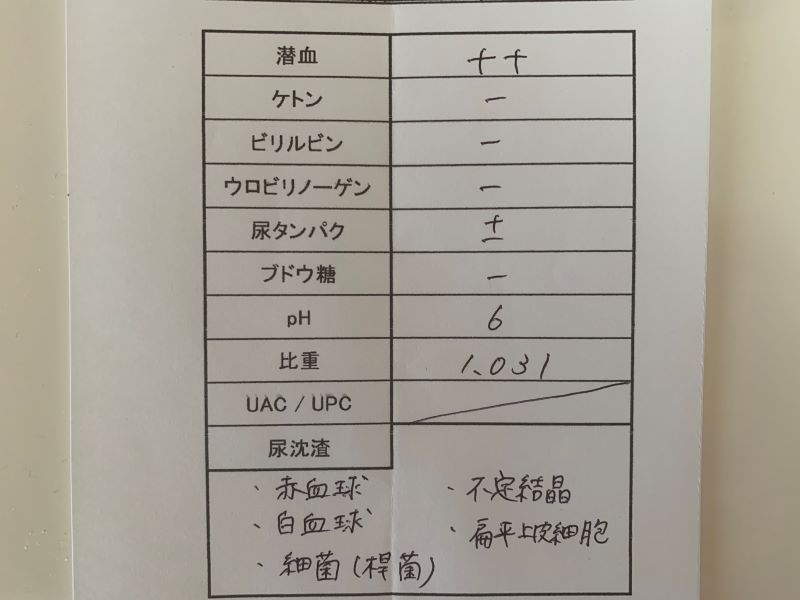 潜血 ++
ケトン −
ビリルビン −
ウロビリノーゲン −
尿タンパク ±
ブドウ糖 −
pH 6
比重 1.031
UAC / UPC
尿沈渣
・赤血球 ・不定結晶
・白血球 ・扁平上皮細胞
・細菌(桿菌)